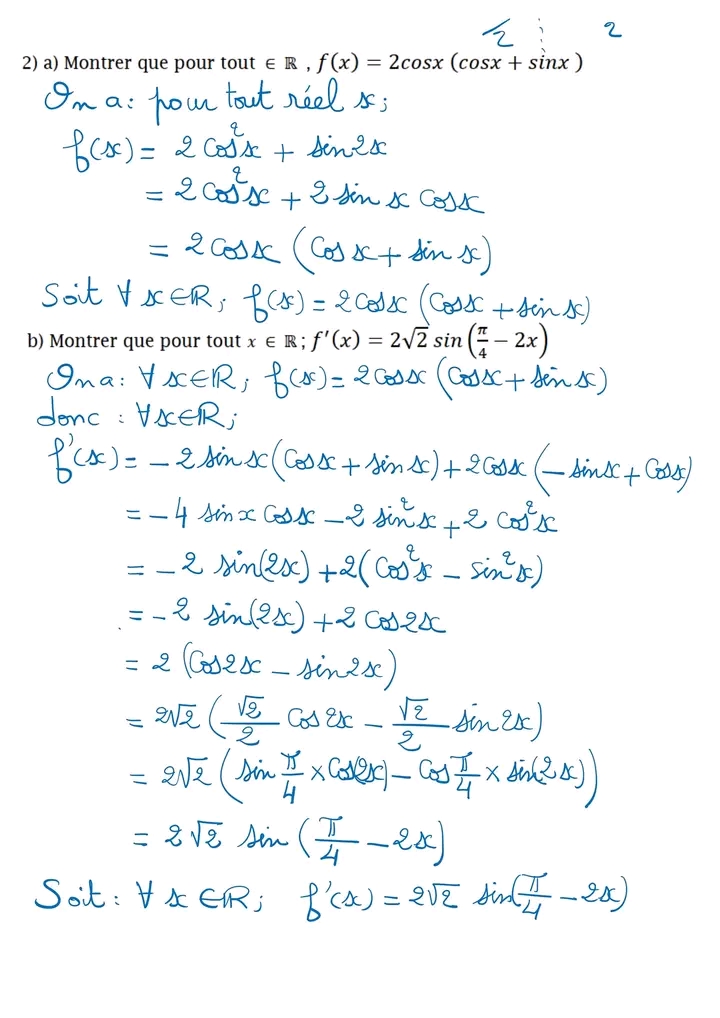 2
2) a) Montrer que pour tout ∈ ℝ , f(x) = 2cosx (cosx + sinx )
On a: pour tout réel x;
f(x) = 2 cos²x + sin2x
= 2 cos²x + 2 sin x cosx
= 2 cosx (cos x + sin x)
Soit ∀ x∈ℝ; f(x) = 2cosx (cosx + sin x)
b) Montrer que pour tout x ∈ ℝ; f′(x) = 2√2 sin (π/4 − 2x)
On a: ∀ x∈ℝ; f(x) = 2cosx (cosx + sin x)
donc : ∀x∈ℝ;
f'(x) = − 2 sin x (cos x + sin x) + 2cosx (− sinx + cosx)
= − 4 sin x cosx − 2 sin²x + 2 cos²x
= − 2 sin(2x) + 2(cos²x − sin²x)
= − 2 sin(2x) + 2 cos2x
= 2 (cos2x − sin2x)
= 2√2 (√2/2 cos 2x − √2/2 sin 2x)
= 2√2 (sin π/4 × cos(2x) − cos π/4 × sin(2x))
= 2√2 sin (π/4 − 2x)
Soit : ∀ x ∈ℝ; f'(x) = 2√2 sin(π/4 − 2x)